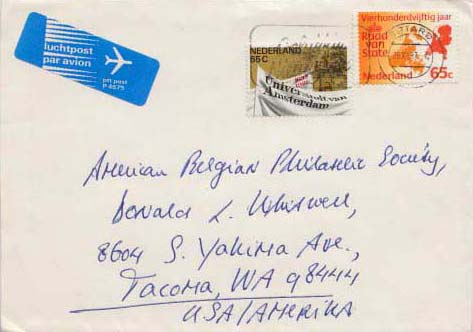 luchtpost
par avion
ptt post
P 6575
NEDERLAND
65 C
Universiteit van
Amsterdam
Vierhondervijftig jaar
Raad
van
State
Nederland 65c
American Belgian Philatelic Society,
Donald L. Whiswell,
8604 S. Yakima Ave.,
Tacoma, WA 98444
USA/AMERIKA